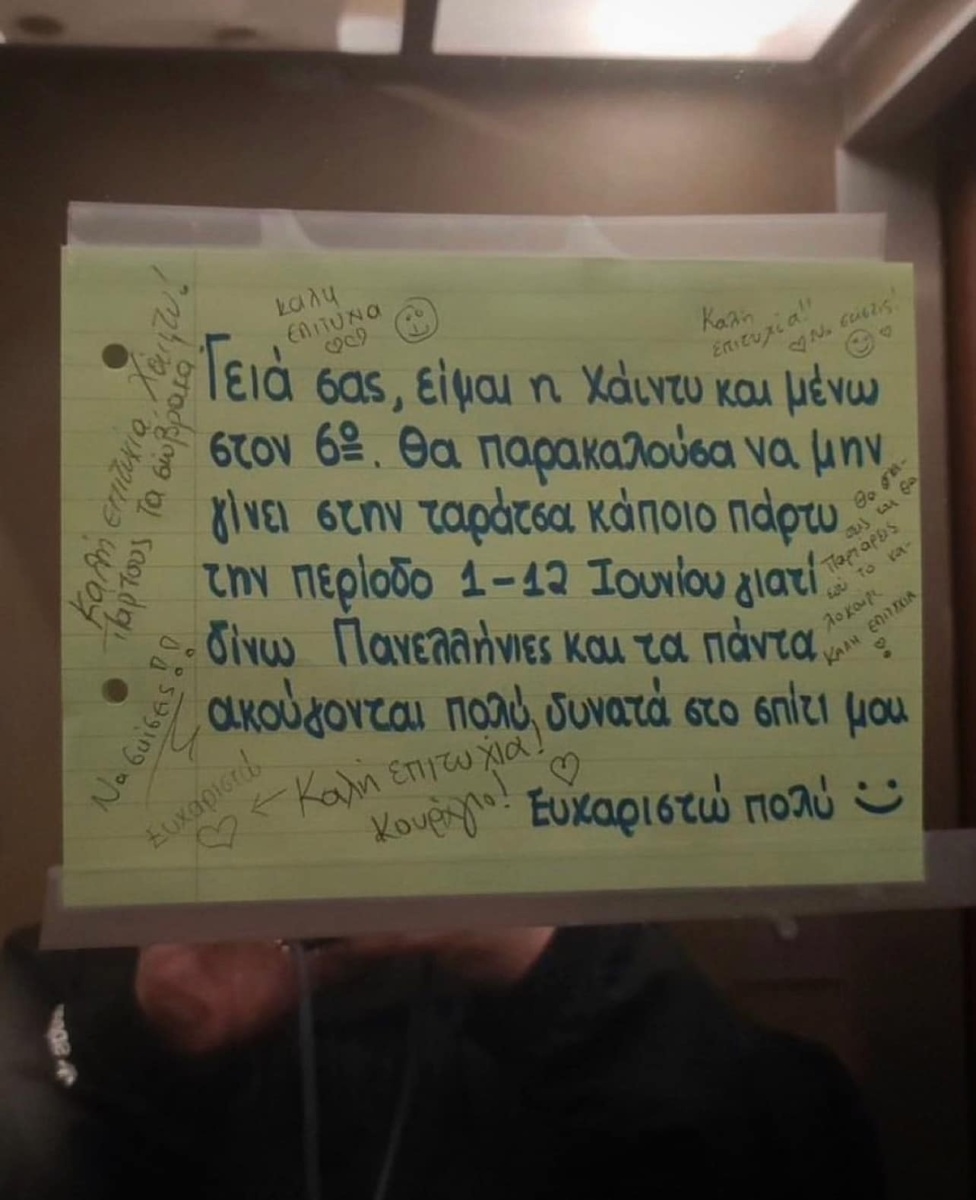 καλη
επιτυχια
Καλη
επιτυχία!!
Να σκίσεις!
Γειά σας, είμαι η Χάιντυ και μένω
στον 6º. Θα παρακαλούσα να μην
γίνει στην ταράτσα κάποιο πάρτυ
την περίοδο 1-12 Ιουνίου γιατί
δίνω Πανελλήνιες και τα πάντα
ακούγονται πολύ δυνατά στο σπίτι μου
Ευχαριστώ πολύ :)
Θα σκί-
σεις και θα
παρτάρεις
εσύ το κα-
λοκαίρι
ΚΑΛΗ ΕΠΙΤΥΧΙΑ
Καλή επιτυχία Χάιντυ!
Παρτους τα σώβρακα
Να σκίσεις!!
Ευχαριστώ
← Καλή επιτυχία!
Κουράγιο!